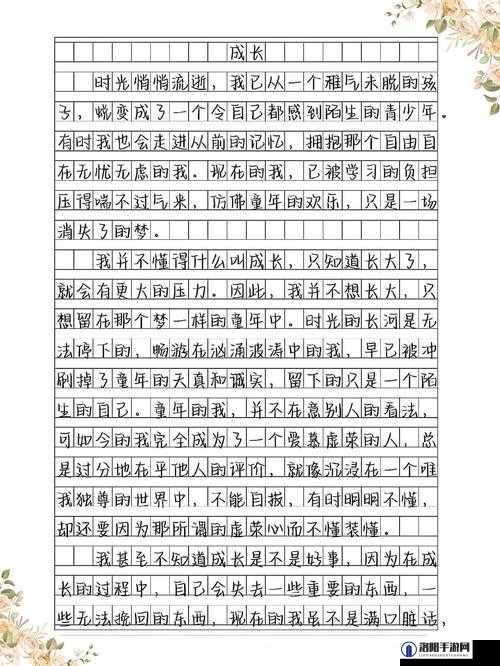 成长
时光悄悄流逝，我已从一个稚气未脱的孩
子，蜕变成了一个令自己都感到陌生的青少年。
有时我也会走进从前的记忆，拥抱那个自由自
在无忧无虑的我。现在的我，已被学习的负担
压得喘不过气来，仿佛童年的欢乐，只是一场
消失了的梦。
我并不懂得什么叫成长，只知道长大了，
就会有更大的压力。因此，我并不想长大，只
想留在那个梦一样的童年中。时光的长河是无
法停下的，畅游在汹涌波涛中的我，早已被冲
刷掉了童年的天真和诚实，留下的只是一个陌
生的自己。童年的我，并不在意别人的看法，
可如今的我完全成为了一个爱慕虚荣的人，总
是过分地在乎他人的评价，就像沉浸在一个唯
我独尊的世界中，不能自报，有时明明不懂，
却还要因为那所谓的虚荣心而不懂装懂。
我甚至不知道成长是不是好事，因为在成
长的过程中，自己会失去一些重要的东西，一
些无法挽回的东西，现在的我虽不是满口脏话，
洛阳手游网